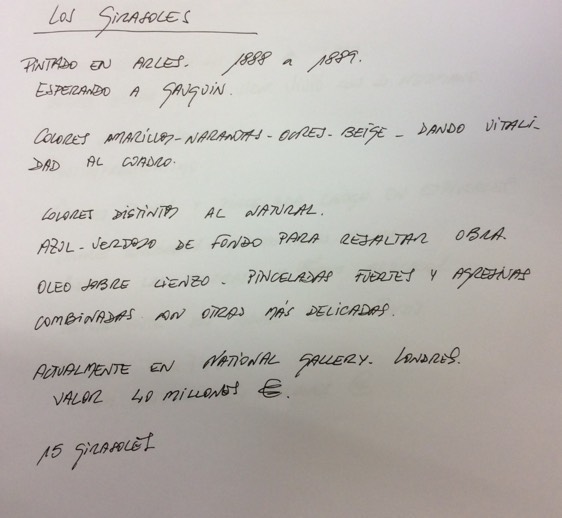 LOS GIRASOLES
PINTADO EN ARLES. 1888 a 1889.
ESPERANDO A GAUGUIN.
COLORES AMARILLOS-NARANJAS-OCRES-BEIGE-DANDO VITALI-
DAD AL CUADRO.
COLORES DISTINTOS AL NATURAL.
AZUL-VERDOSO DE FONDO PARA RESALTAR OBRA.
OLEO SOBRE LIENZO. PINCELADAS FUERTES Y AGRESIVAS
COMBINADAS CON OTRAS MÁS DELICADAS.
ACTUALMENTE EN NATIONAL GALLERY. LONDRES.
VALOR 40 MILLONES €.
15 GIRASOLES